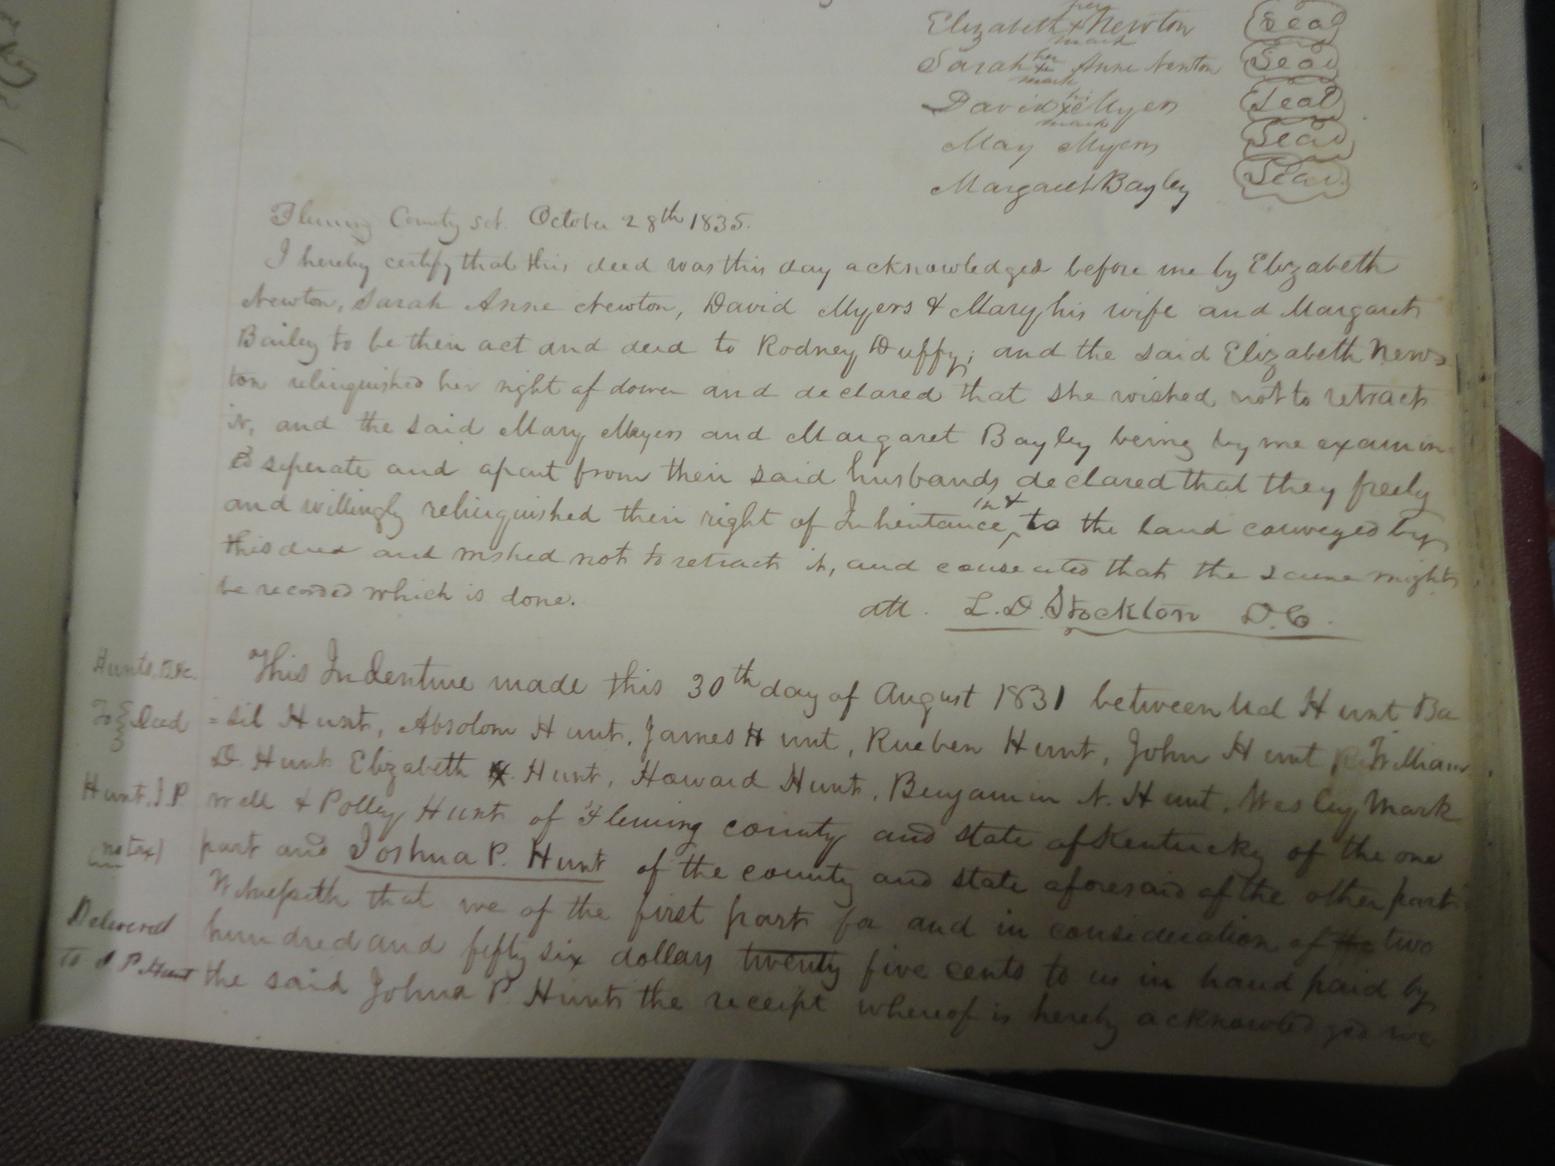 her
Elizabeth x Newton Seal
mark
her
Sarah x Anne Newton Seal
mark
his
David x Myers Seal
mark
May Myers Seal
Margaret Bayley Seal
Fleming County sct. October 28th 1835.
I hereby certify that this deed was this day acknowledged before me by Elizabeth
Newton, Sarah Anne Newton, David Myers & Mary his wife and Margaret
Bailey to be their act and deed to Rodney Duffy; and the said Elizabeth New=
ton relinquished her right of dower and declared that she wished not to retract
it, and the said Mary Myers and Margaret Bayley being by me examin-
ed seperate and apart from their said husbands declared that they freely
and willingly relinquished their right of Inheritance in & to the land conveyed by
this deed and wished not to retract it, and consented that the same might
be recorded which is done.
att. L. D. Stockton D.C.
Hunts, &c.
To } Deed
Hunt, J. P.
(no tax)
Delivered
to J P. Hunt
This Indenture made this 30th day of August 1831 between Ud Hunt Ba
=sil Hunt, Absolom Hunt, James Hunt, Rueben Hunt, John Hunt William
D. Hunt Elizabeth Hunt, Howard Hunt, Benjamin N. Hunt, Wesley Mark
well & Polley Hunt of Fleming county and state of Kentucky of the one
part and Joshua P. Hunt of the county and state aforesaid of the other part
Witnesseth that we of the first part for and in consideration of the two
hundred and fifty six dollars twenty five cents to us in hand paid by
the said Johua P. Hunts the receipt whereof is hereby acknowledged we